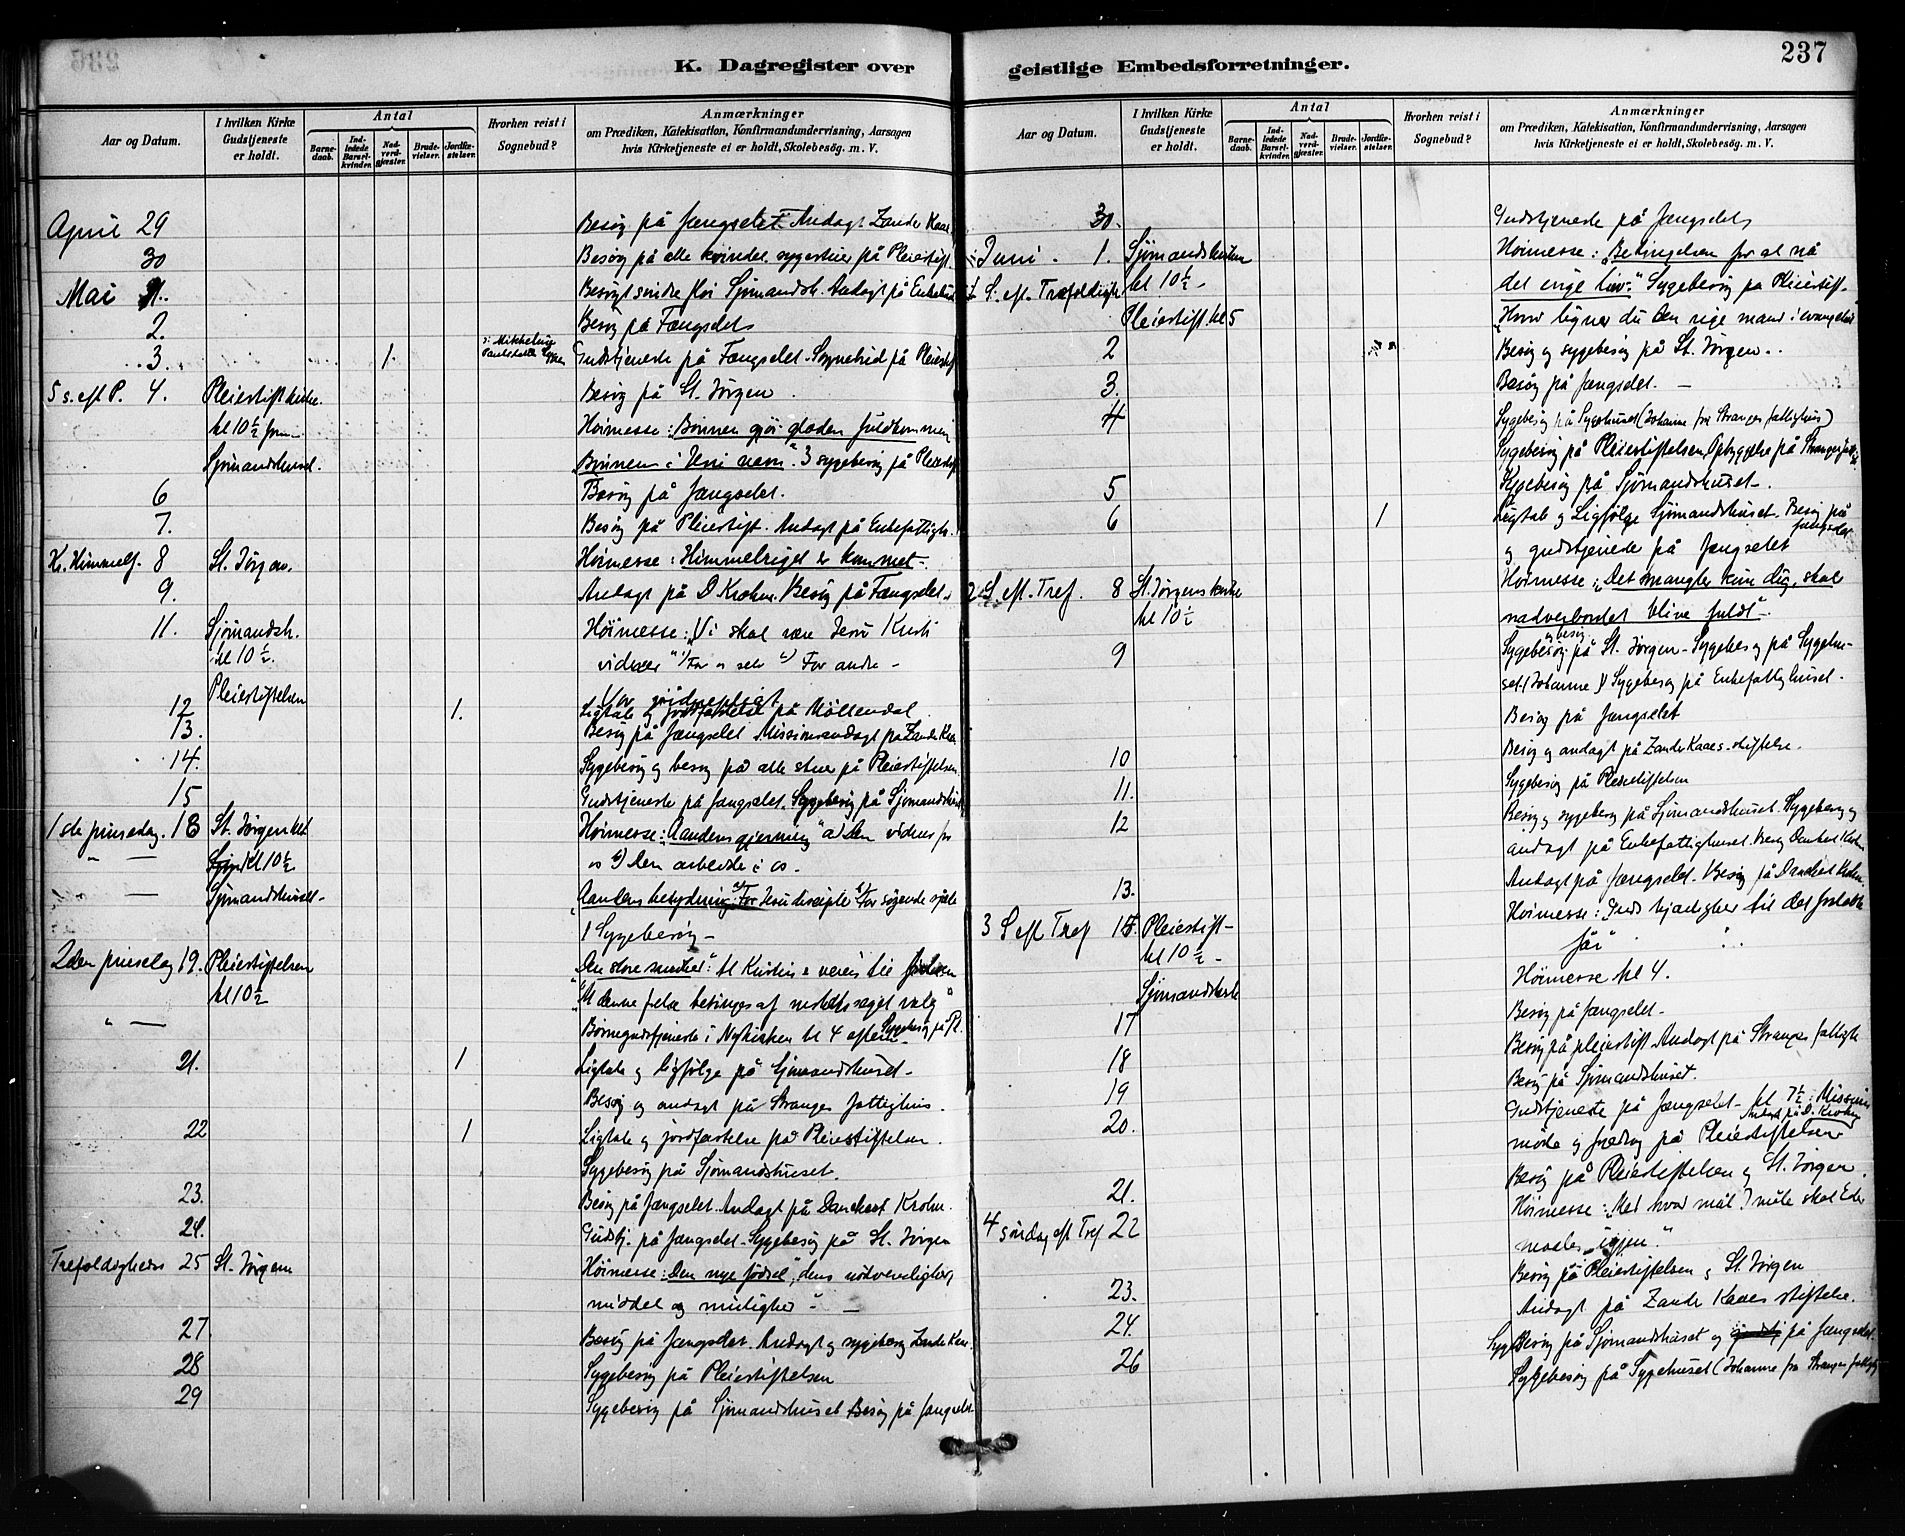 237
K. Dagregister over
geistlige Embedsforretninger.
Aar og Datum.
I hvilken Kirke Gudstjeneste er holdt.
Antal
Barne-daab.
Ind-ledede Barsel-kvinder.
Nad-verd-gjæster.
Brude-vielser.
Jordfæ-stelser.
Hvorhen reist i Sognebud?
Anmærkninger
om Prædiken, Katekisation, Konfirmandundervisning, Aarsagen
hvis Kirketjeneste ei er holdt, Skolebesög. m. V.
April 29 Besög på fængselet Andagt Zander Kaae
30 Besög på alle kvindel. sygestuer på Pleiestift.
Mai 1. Besögt söndre flöi Sjömandsh. Andagt på
2. Besög på Fængselet
3. 1. Gudstjeneste på Fængselet. Sognebud på Pleiestift
5 s. eft P. 4. Pleiestift kirke. Besög på St. Jörgen
kl 10 ½ form Höimesse: Bönnen gjör glæden fuldkommen
Sjömandshuset. Bönnen i Jesu navn". 3 sygebesög på Pleiestift
6 Besög på fængselet.
7. Besög på Pleiestift. Andagt på Enkefattigh.
Kr. Himmelf. 8 St. Jörgen. Höimesse: Himmelriget er kommet
9. Andagt på D Krohn. Besög på Fængselet.
11. Sjömandsh. Höimesse: "Vi skal være Jesu Kristi
kl 10 ½. vidner" 1) For os selv 2) For andre
Pleiestiftelsen
12 1. Ligtale og jordfæstelse på Möllendal
13. Besög på fængselet Missionsandagt på Zander Kaae
14. Sygebesög og besög på alle stuer på Pleiestiftelsen
15 Gudstjeneste på fængselet. Sygebesög på Sjömandshuset
1ste pinsedag. 18 St. Jörgen Höimesse: Aandens gjerning" a) Den vidner for
" — Kl 10 ½ os b) Den arbeide i os.
" — Sjömandshuset Aandens betydning: For Jesu disciple For sögende sjæle
1 Sygebesög
2den pinsedag 19. Pleiestiftelsen
kl 10 ½
" — Börnegudstjeneste i Nykirken kl 4 efterm. Sygebesög på Pl.
21. 1 Ligtale og ligfölge på Sjömandshuset
Besög og andagt på Stranges fattighus.
22 1 Ligtale og jordfæstelse på Pleiestiftelsen.
Sygebesög på Sjömandshuset.
23. Besög på fængselet. Andagt på Danckert Krohn.
24. Gudstj. på fængselet. Sygebesög på St. Jörgen
Trefoldigheds 25 St. Jörgen Höimesse: Den nye födsel", dens nödvendighed,
middel og mulighed
27. Besög på fængselet. Andagt og sygebesög Zander Kaae
28 Sygebesög på Pleiestiftelsen
29 Sygebesög på Sjömandshuset Besög på fængselet
Aar og Datum.
I hvilken Kirke Gudstjeneste er holdt.
Antal
Barne-daab.
Ind-ledede Barsel-kvinder.
Nad-verd-gjæster.
Brude-vielser.
Jordfæ-stelser.
Hvorhen reist i Sognebud?
Anmærkninger
om Prædiken, Katekisation, Konfirmandundervisning, Aarsagen
hvis Kirketjeneste ei er holdt, Skolebesög. m. V.
30. Gudstjeneste på fængselet
Juni 1. Sjömandskirken Höimesse: "Betingelsen for at nå
S. eft. Trefoldigh kl 10 ½ det evige liv". Sygebesög på Pleiestift.
Pleiestift kl 5 Hvor ligner du den rige mand i evangeliet
2 Besög og sygebesög på St. Jörgen.
3. Besög på fængselet.
4 Sygebesög på Sygehuset (Johanne fra Stranges fattighus)
Sygebesög på Pleiestiftelsen Opbyggelse på Stranges fattigh
5 Sygebesög på Sjömandshuset
6 1 Ligtale og Ligfölge Sjömandshuset. Besög på fængselet
og gudstjeneste på fængselet
2 S. eft. Tref. 8 St. Jörgens kirke Höimesse: "Det mangler kun dig, skal
kl 10 ½ nadverbordet blive fuldt"
9 Sygebesög og besög på St. Jörgen. Sygebesög på Sygehu-
set. (Johanne) Sygebesög på Enkefattighuset.
Besög på fængselet
10 Besög og andagt på Zander Kaaes stiftelse.
11. Sygebesög på Pleiestiftelsen
12 Besög og sygebesög på Sjömandshuset. Sygebesög og
andagt på Enkefattighuset. Besög Danckert Krohn
13. Andagt på fængselet. Besög på Danckert Krohn.
3 S eft Tref 15. Pleiestift Höimesse: Guds kjærlighed til det fortabte
kl 10 ½ får"
Sjömandskirke Höimesse kl 4.
17 Besög på fængselet
18 Besög på pleiestift Andagt på Stranges fattigh
19 Besög på Sjömandshuset.
20. Gudstjeneste på fængselet kl 7 ½: Missions
Andagt på D. Krohn
möde og foredrag på Pleiestiftelsen
21. Besög på Pleiestiftelsen og St. Jörgen.
4 söndag eft Tref 22 Höimesse: "Med hvad mål I måle skal Eder
maales igjen."
23. Besög på Pleiestiftelsen og St. Jörgen
24. Andagt på Zander Kaaes stiftelse.
Sygebesög på Sjömandshuset og på fængselet.
26 Sygebesög på Sygehuset (Johanne fra Stranges fattigh